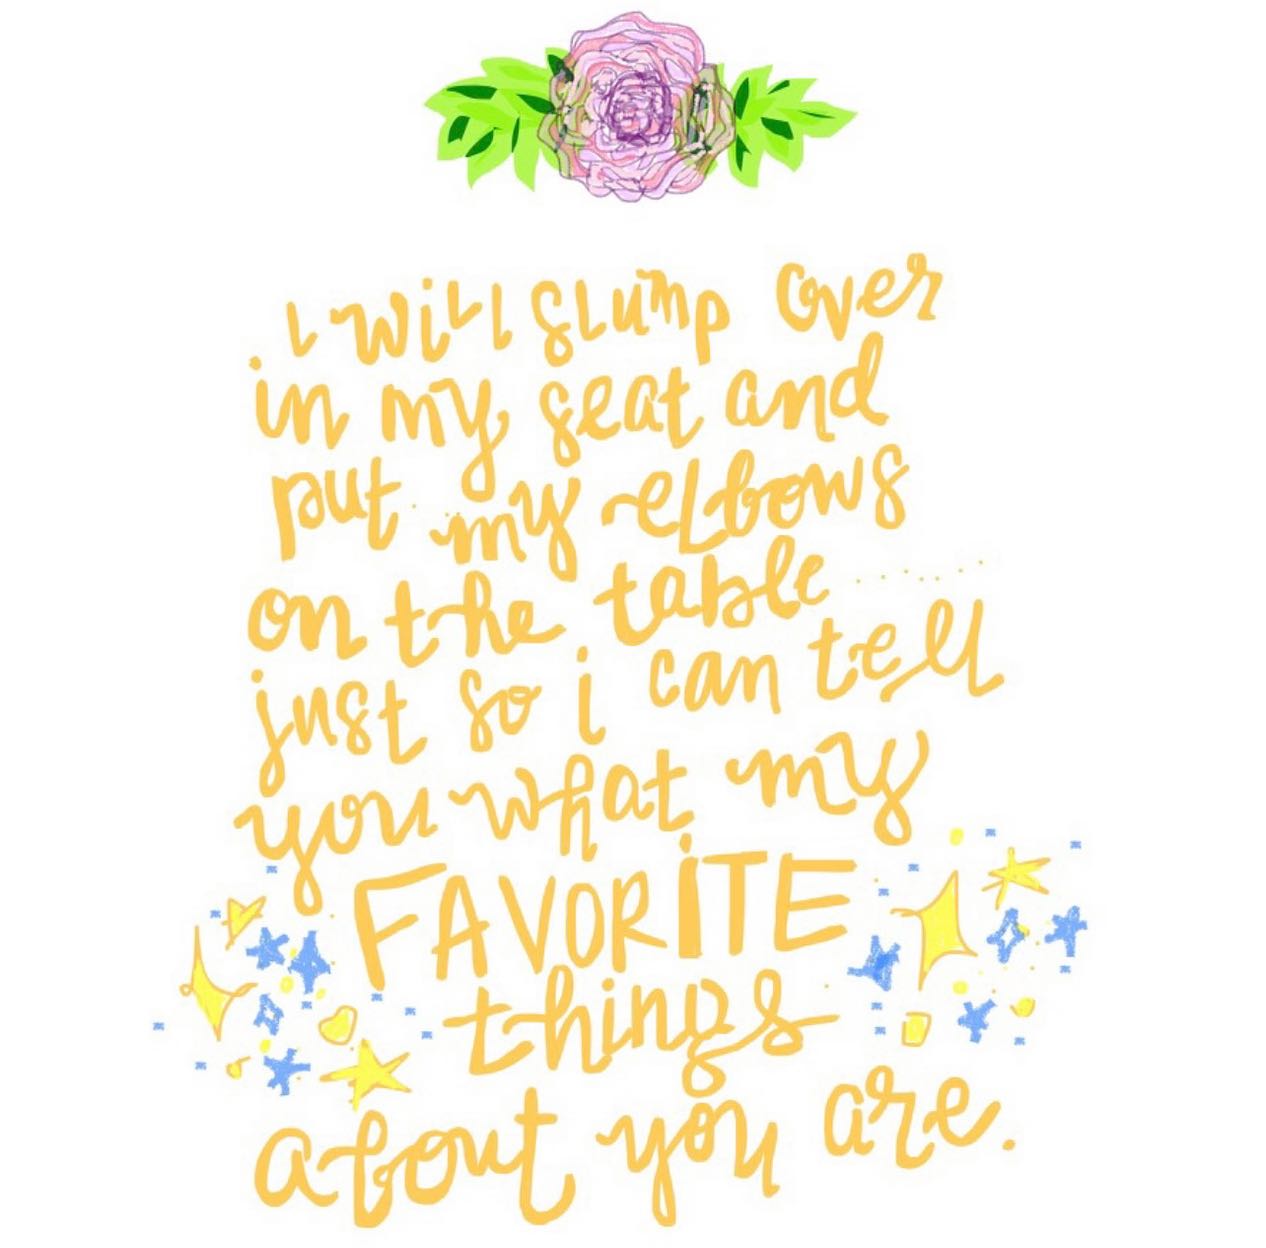 i will slump over
in my seat and
put my elbows
on the table.......
just so i can tell
you what my
FAVORITE
things
about you are.